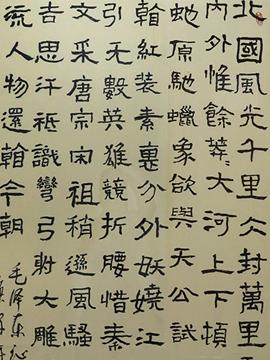 北國風光千里仌封萬里
內外惟餘莽〻大河上下頓
虵原馳蠟象欲與天公試
翰紅裝素裹分外妖嬈江
引无數英雄競折腰惜秦
文采唐宗宋祖稍遜風騷
吉思汗祗識彎弓射大雕
流人物還翰今朝
毛泽东